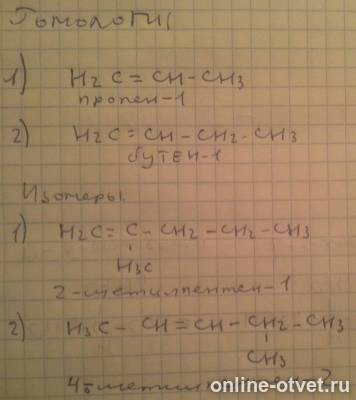 Гомологи
1) H2C=CH-CH3
пропен-1
2) H2C=CH-CH2-CH3
бутен-1
Изомеры.
1) H2C=C-CH2-CH2-CH3
H3C
2-метилпентен-1
2) H3C-CH=CH-CH2-CH3
CH3
online-otvet.ru